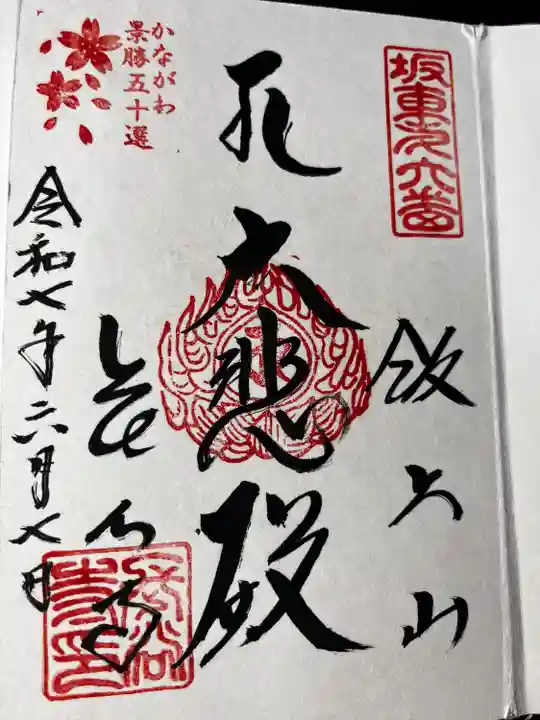 坂東㐧六番
飯上山
大悲殿
長谷寺
かながわ
景勝五十選
令和七年六月七日